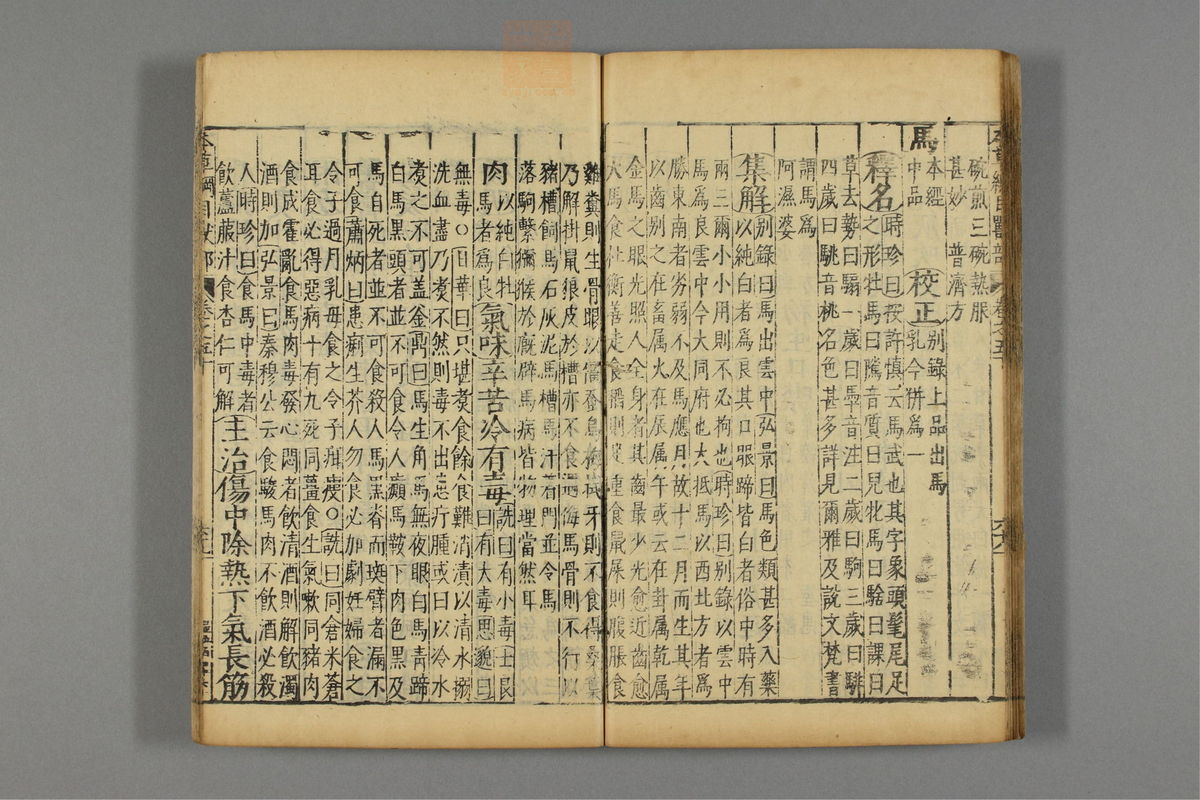 碗煎三碗熱服
甚妙 普濟方
馬
本經
中品
校正
別錄上品出馬
乳今併為一
釋名
時珍曰按許慎云馬武也其字象頭髦尾足
之形牡馬曰騭音質曰兒牝馬曰騇曰課曰
草去勢曰騸一歲曰馵音注二歲曰駒三歲曰駣
四歲曰駣音桃名色甚多詳見爾雅及說文梵書
謂馬為
阿濕婆
集解
別錄曰馬出雲中弘景曰馬色類甚多入藥
以純白者為良其口眼蹄皆白者俗中時有
兩三爾小小用則不必拘也時珍曰別錄以雲中
馬為良雲中今大同府也大抵馬以西北方者為
勝東南者劣弱不及馬應月故十二月而生其年
以齒別之在畜屬火在辰屬午或云在卦屬乾屬
金馬之眼光照人全身者其齒最少光愈近齒愈
大馬食杜衡善走食稻則足重食鼠屎則腹脹食
雞糞則生骨眼以僵蠶烏梅拭牙則不食得桑葉
乃解掛鼠狼皮於槽亦不食遇海馬骨則不行以
豬槽飼馬石灰泥馬槽馬汗着門並令馬
落駒繫獼猴於廐辟馬病皆物理當然耳
肉
以純白牡
馬者為良
氣味辛苦冷有毒
詵曰有小毒士良
曰有大毒思邈曰
無毒○日華曰只堪煑食餘食難消漬以清水搦
洗血盡乃煑不然則毒不出患疔腫或曰以冷水
煑之不可蓋釜鼎曰馬生角馬無夜眼白馬青蹄
白馬黑頭者並不可食令人癲馬鞍下肉色黑及
馬自死者並不可食殺人馬黑脊而斑臂者漏不
可食蕭炳曰患痢生芥人勿食必加劇妊婦食之
令子過月乳母食之令子疳瘦○詵曰同倉米蒼
耳食必得惡病十有九死同薑食生氣嗽同豬肉
食成霍亂食馬肉毒發心悶者飲清酒則解飲濁
酒則加弘景曰秦穆公云食駿馬肉不飲酒必殺
人時珍曰食馬中毒者
飲蘆菔汁食杏仁可解
主治傷中除熱下氣長筋